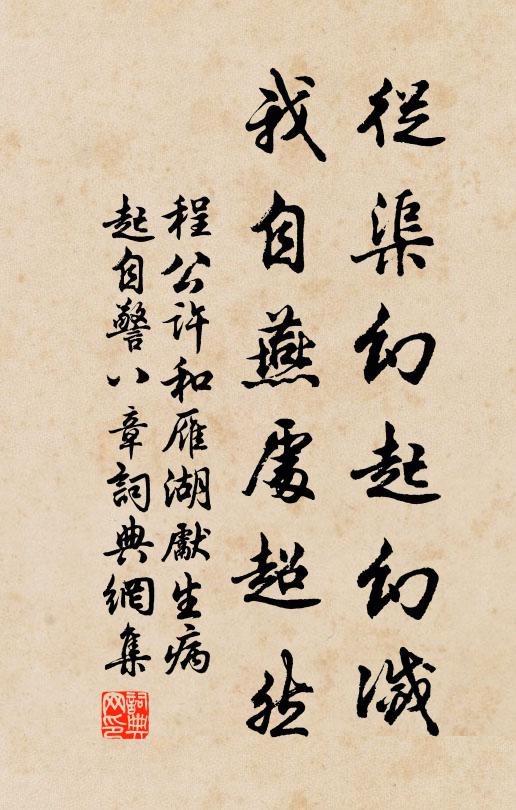 從渠幻起幻滅
我自燕處超然
程公許和雁湖獻生病
起自警八章詞典網集
詞典網印